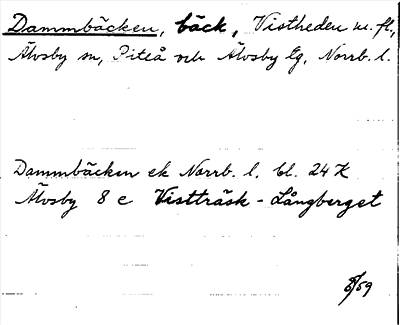 Dammbäcken, bäck, Vistheden m. fl.,
Älvsby sn, Piteå och Älvsby tg, Norrb. l.
Dammbäcken ek Norrb. l. bl. 24 K
Älvsby 8 e Vistträsk - Långberget
8/59